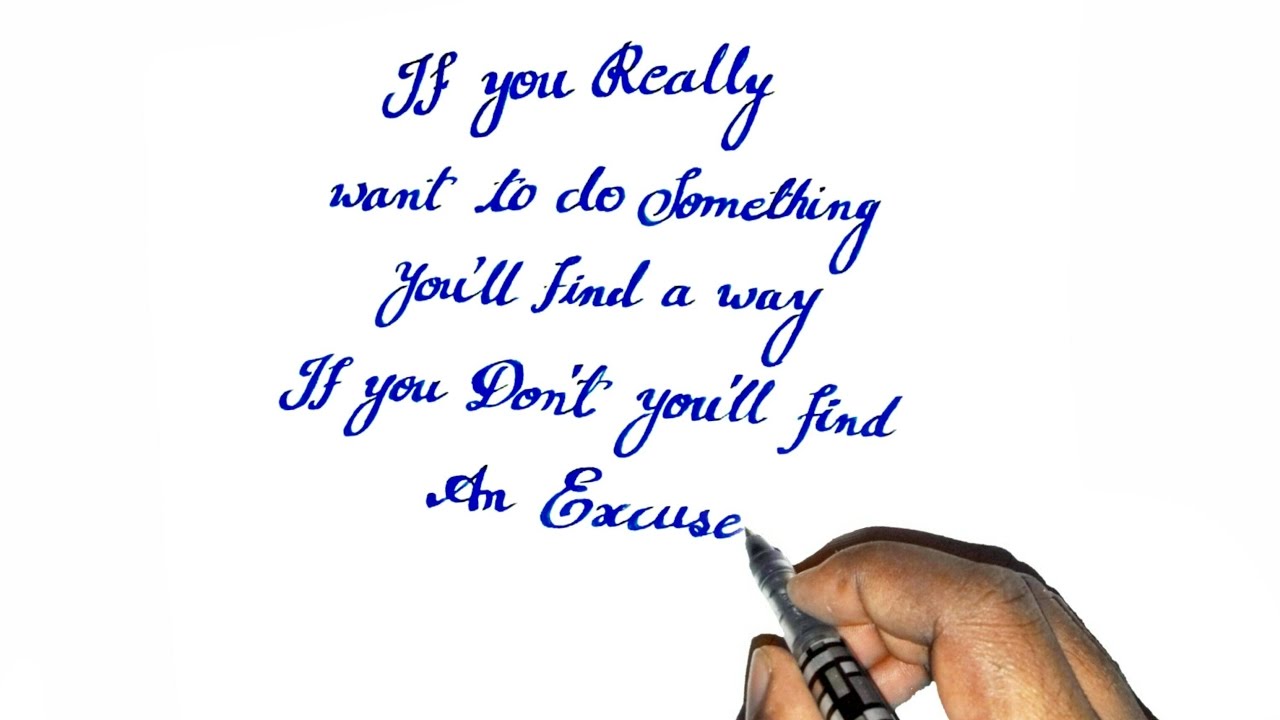 If you Really
want to do Something
You'll find a way
If you Don't you'll find
An Excuse